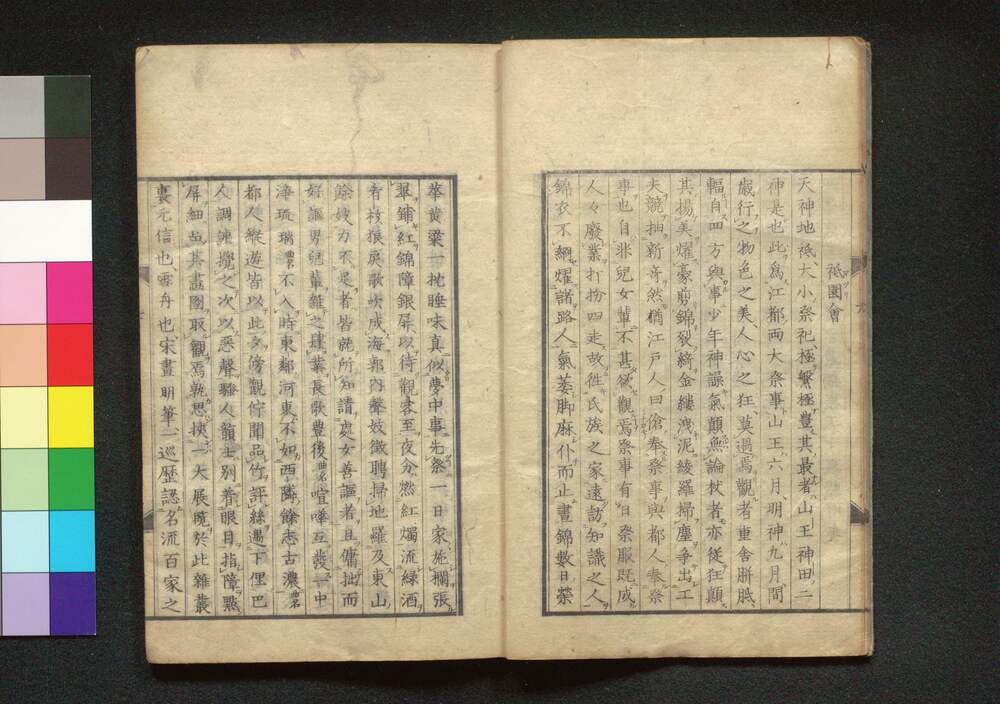 祗園會
天神地祗大小祭祀極繁極豊其最者山王神田二
神是也此爲江都兩大祭事山王六月明神九月間
歲行之物色之美人心之狂莫過焉觀者重舍胼胝
輻自四方與事少年神譟氣顛無論杖者亦從狂顛
其揚美燿豪剪錦裂綺金縷洩泥綾羅掃塵爭出工
夫競抽新奇然猶江戶人曰傖奉祭事與都人奉祭
事也自非兒女輩不甚縱觀焉祭事有日祭服既成
人々廢業打扮四走故徃氏族之家遠訪知識之人
錦衣不絅燿諸路人氣萎脚麻仆而止晝錦數日榮
華黄粱一枕睡味真似夢中事先祭一日家施欄張
鋪紅錦障銀屏以待觀客至夜分燃紅燭流緑酒
肴核狼戾歌吹成海郭内聲妓徵聘掃地羅及東山
餘妓力不足者皆就所知請處女善謳者且傭拙而
好謳男兒輩雜之建業長歌豊後曲名喧嘩互發一中
津琉璃曲名不入時東都河東不如西隣餘志古濃曲名
都人縱遊皆以此夕傍觀佇聞品竹評絲過下俚巴
人調諫攪之次以惡聲騷人韻士別着眼目指障點
屏細品其畫圖取觀焉乾思挾一大展覧於此雜叢
裏元信也雪舟也宋畫明筆一巡歷認名流百家之